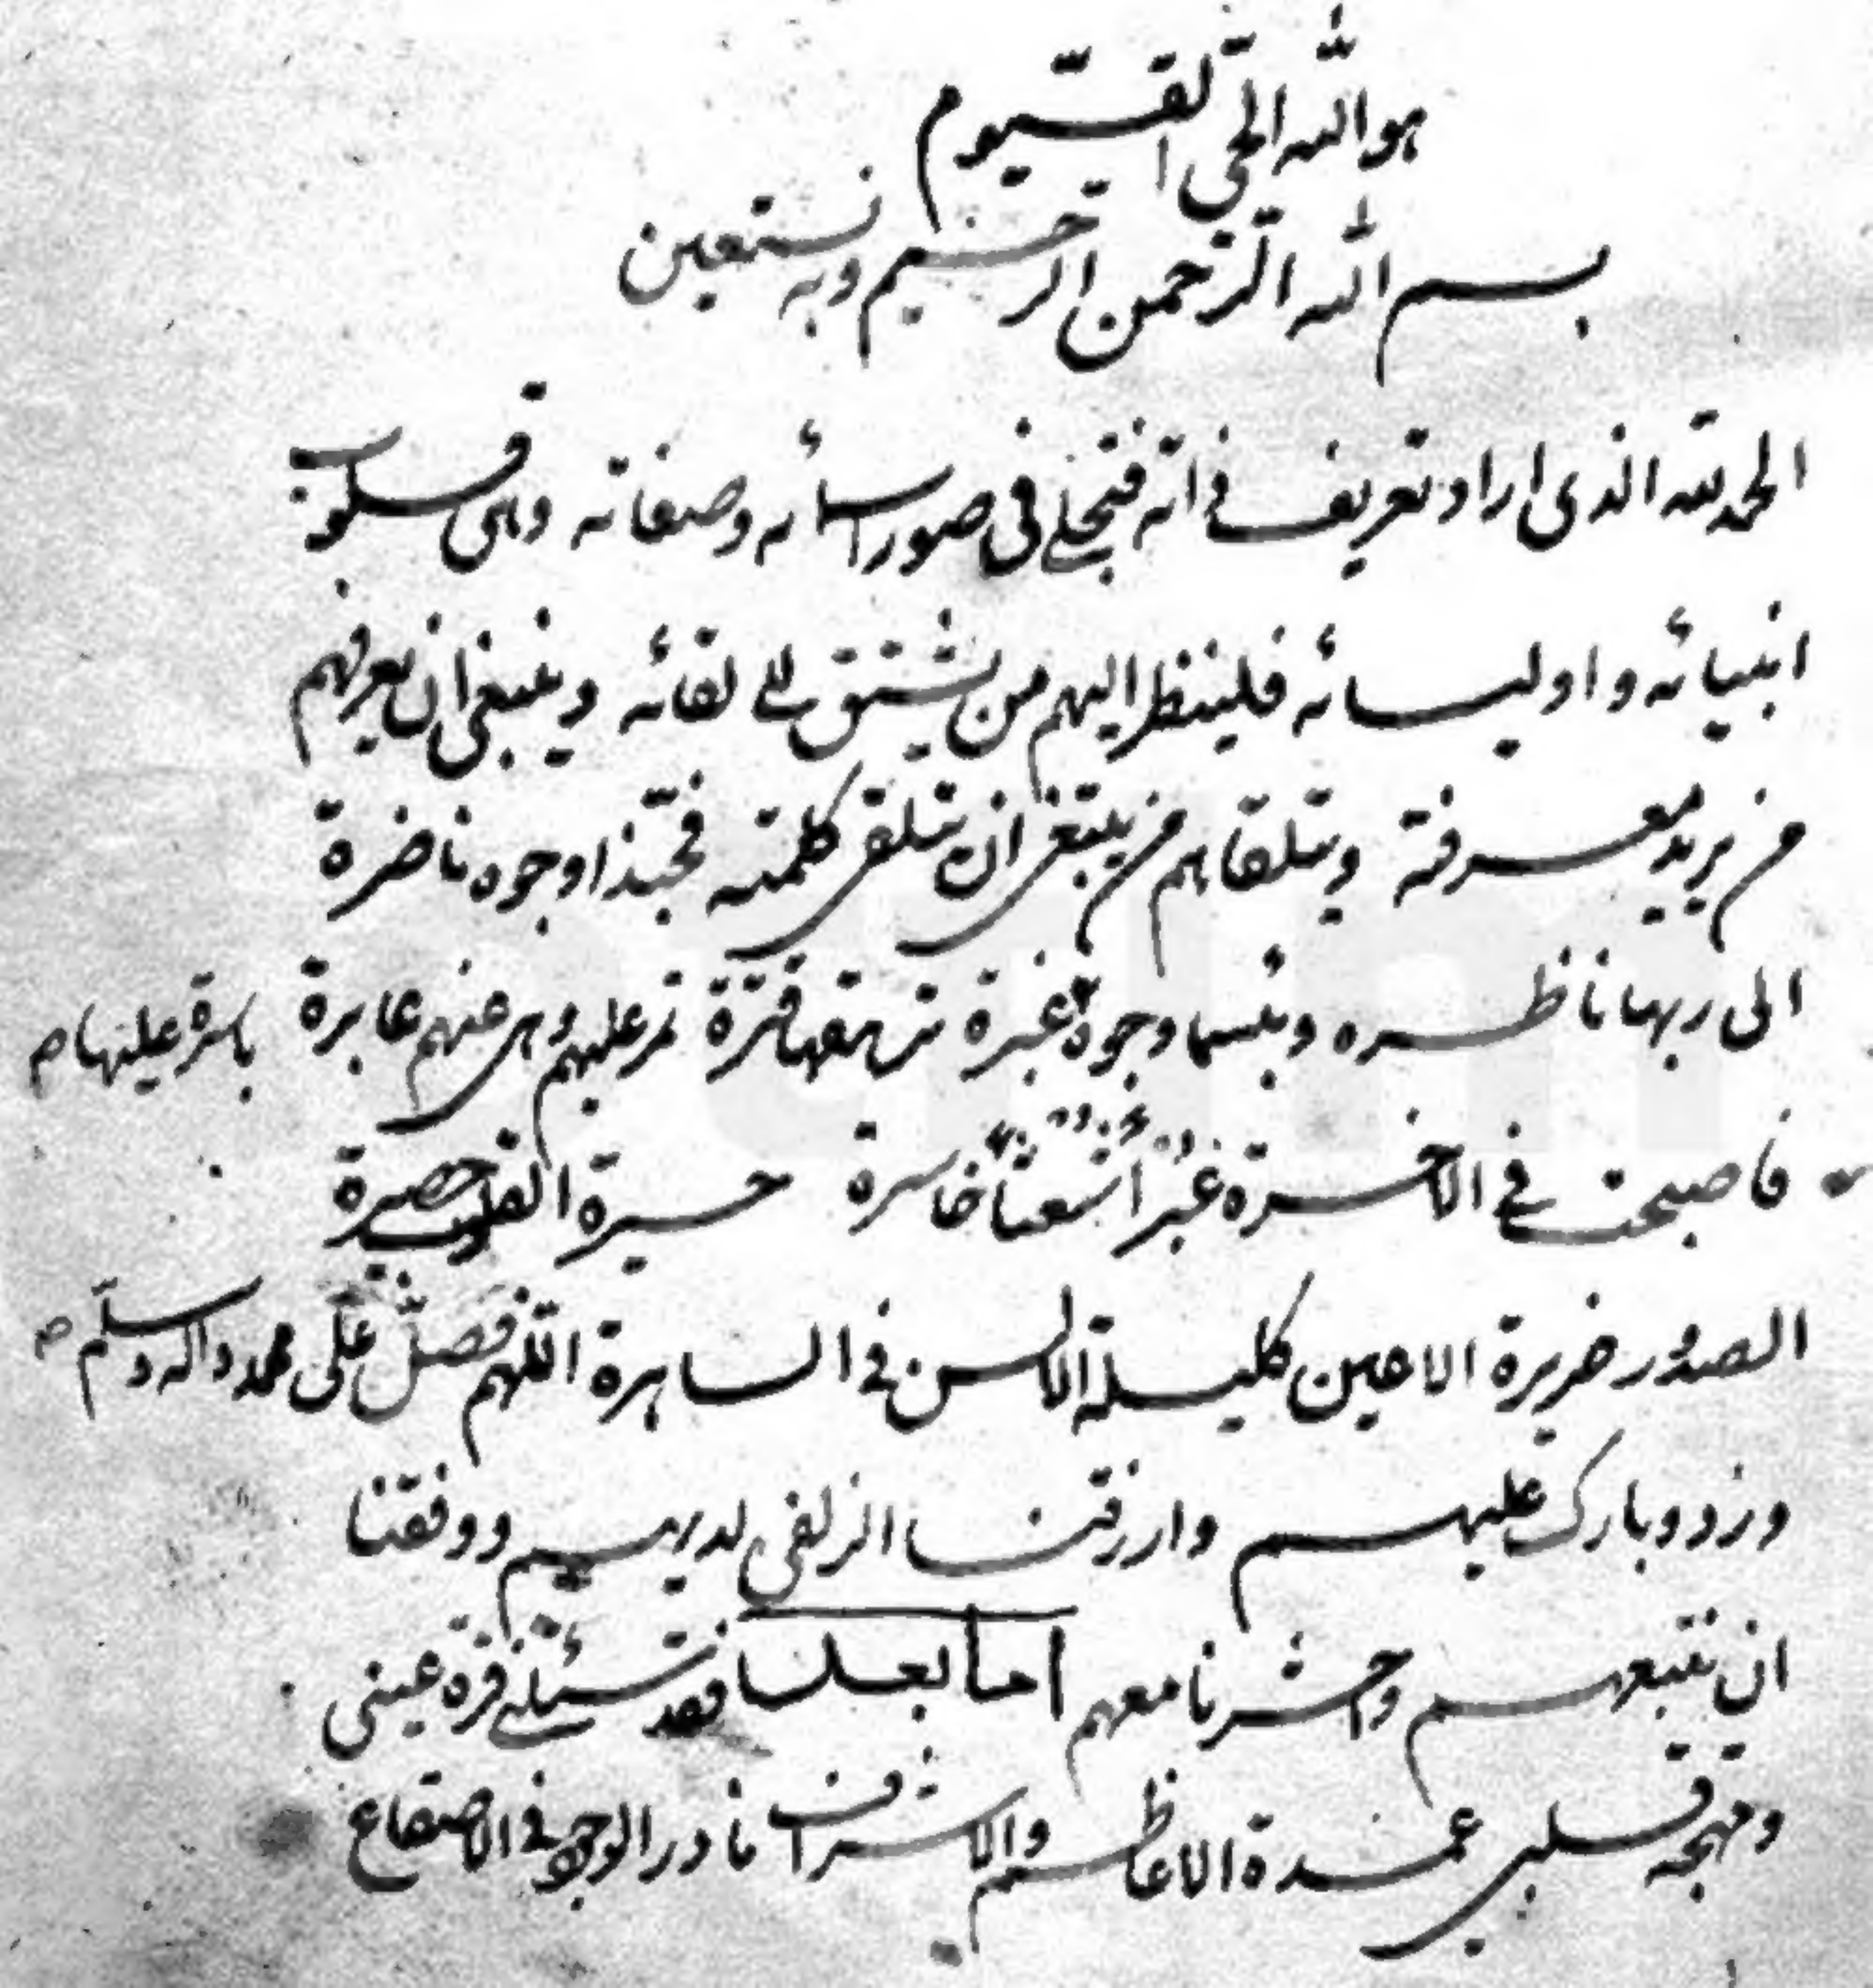 هو الله الحی القیوم
بسم الله الرحمن الرحیم وبه نستعین
الحمد لله الذی اراد تعریف ذاته فتجلی فی صور اسمائه وصفاته وهی قلوب
انبیائه واولیائه فلینظر الیهم من یشتق الی لقائه وینبغی ان یعرفهم
من یرید معرفته ویتلقاهم من یبتغی ان یتلقی کلمته فحبذا وجوه ناضرة
الی ربها ناظره وبئسما وجوه غبرة ترهقها قترة تمر علیهم وهی عنهم عابرة باسرة علیها صح
فاصبحت فی الاخسرة غبرا شعثا خاسرة حسیرة القلوب حصیرة
الصدور ضریرة الاعین کلیلة الالسن فی الساهرة اللهم فصل علی محمد واله وسلم صح
وزد وبارک علیهم وارزقنا الزلفی لدیهم ووفقنا
ان نتبعهم واحشرنا معهم اما بعد فقد سئلنی قرة عینی
ومهجة قلبی عمدة الاعاظم والاشراف نادر الوجود فی الاصقاع